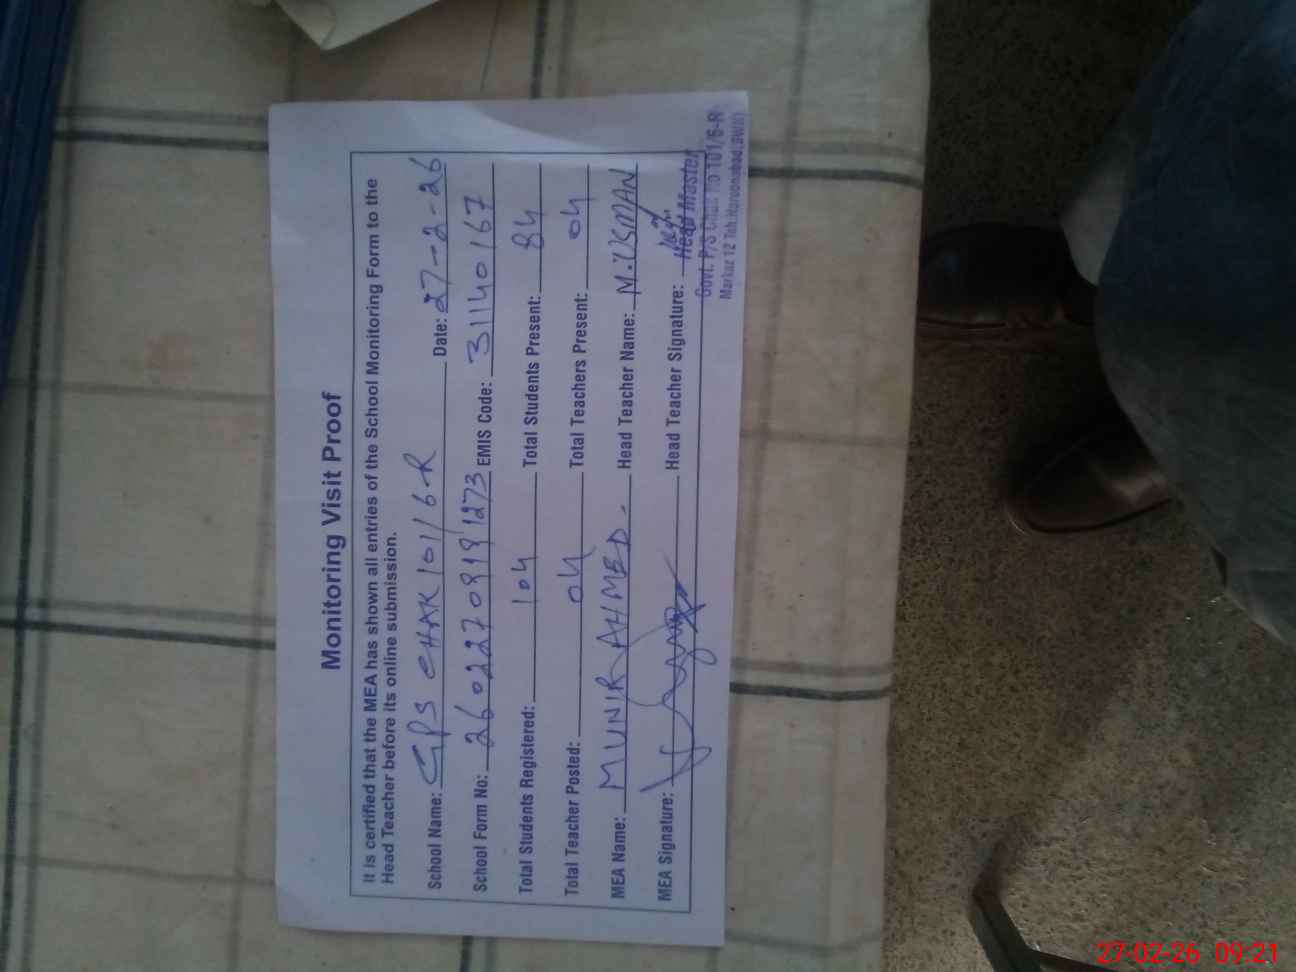 Monitoring Visit Proof
It is certified that the MEA has shown all entries of the School Monitoring Form to the
Head Teacher before its online submission.
School Name: GPS CHAK 101/6-R Date: 27-2-26
School Form No: 26022709191273 EMIS Code: 31140167
Total Students Registered: 104 Total Students Present: 84
Total Teacher Posted: 04 Total Teachers Present: 04
MEA Name: MUNIR AHMED. Head Teacher Name: M.USMAN
MEA Signature: Head Teacher Signature:
Head Master
Govt. P/S Chak No 101/6-R
Markaz 12 Teh Haroonabad(BWN)
27-02-26 09:21